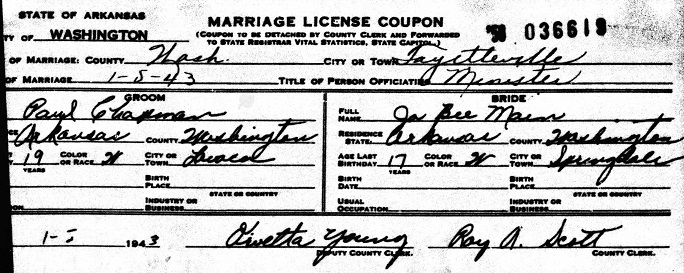 STATE OF ARKANSAS
MARRIAGE LICENSE COUPON
'58 036619
TY OF WASHINGTON (COUPON TO BE DETACHED BY COUNTY CLERK AND FORWARDED
TO STATE REGISTRAR VITAL STATISTICS, STATE CAPITOL)
OF MARRIAGE: COUNTY Wash. CITY OR TOWN Fayetteville
OF MARRIAGE 1-5-43 TITLE OF PERSON OFFICIATING Minister
GROOM BRIDE
Paul Chapman FULL NAME Jo Bee Main
Arkansas COUNTY Washington RESIDENCE STATE: Arkansas COUNTY Washington
19 YEARS COLOR OR RACE W CITY OR TOWN AGE LAST BIRTHDAY 17 YEARS COLOR OR RACE W CITY OR TOWN Springdale
BIRTH PLACE BIRTH DATE BIRTH PLACE STATE OR COUNTRY
INDUSTRY OR BUSINESS USUAL OCCUPATION INDUSTRY OR BUSINESS
1-5 1943 Owetta Young Roy A. Scott
DEPUTY COUNTY CLERK. COUNTY CLERK.